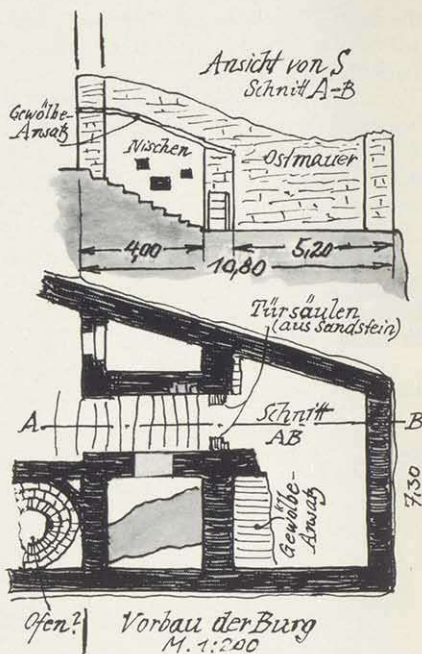 Ansicht von S
Schnitt A-B
Gewölbe-
Ansatz
Nischen
Ostmauer
4,00
5,20
10,80
Türsäulen
(aus Sandstein)
A
Schnitt
AB
B
7,30
Gewölbe-
Ansatz
Ofen?
Vorbau der Burg
M. 1:200